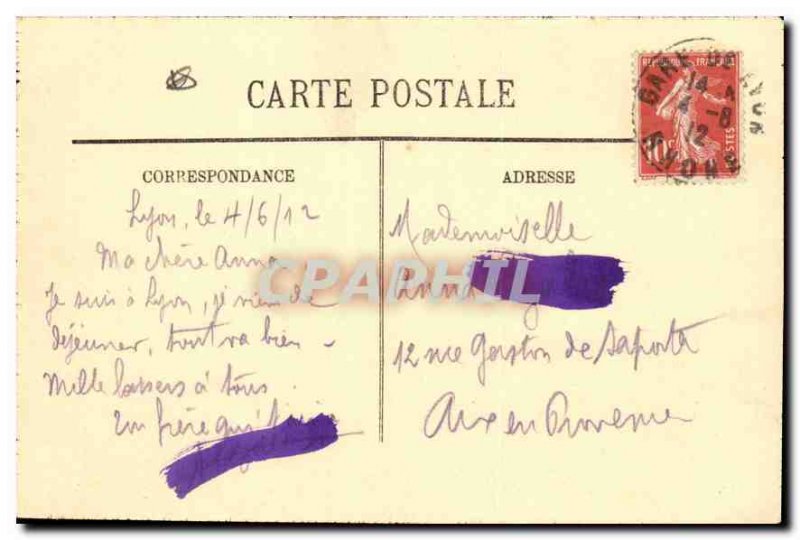 CARTE POSTALE
REPUBLIQUE FRANÇAISE
10c
POSTES
GARE DE LYON
14
4 -8
12
RHONE
CORRESPONDANCE
Lyon, le 4/6/12
Ma chère Anna
Je suis à Lyon, je viens de
déjeuner, tout va bien -
Mille baisers à tous.
Ton frère qui t'aime
ADRESSE
Mademoiselle
Anna
12 rue Gaston de Saporta
Aix en Provence
CPAPHIL